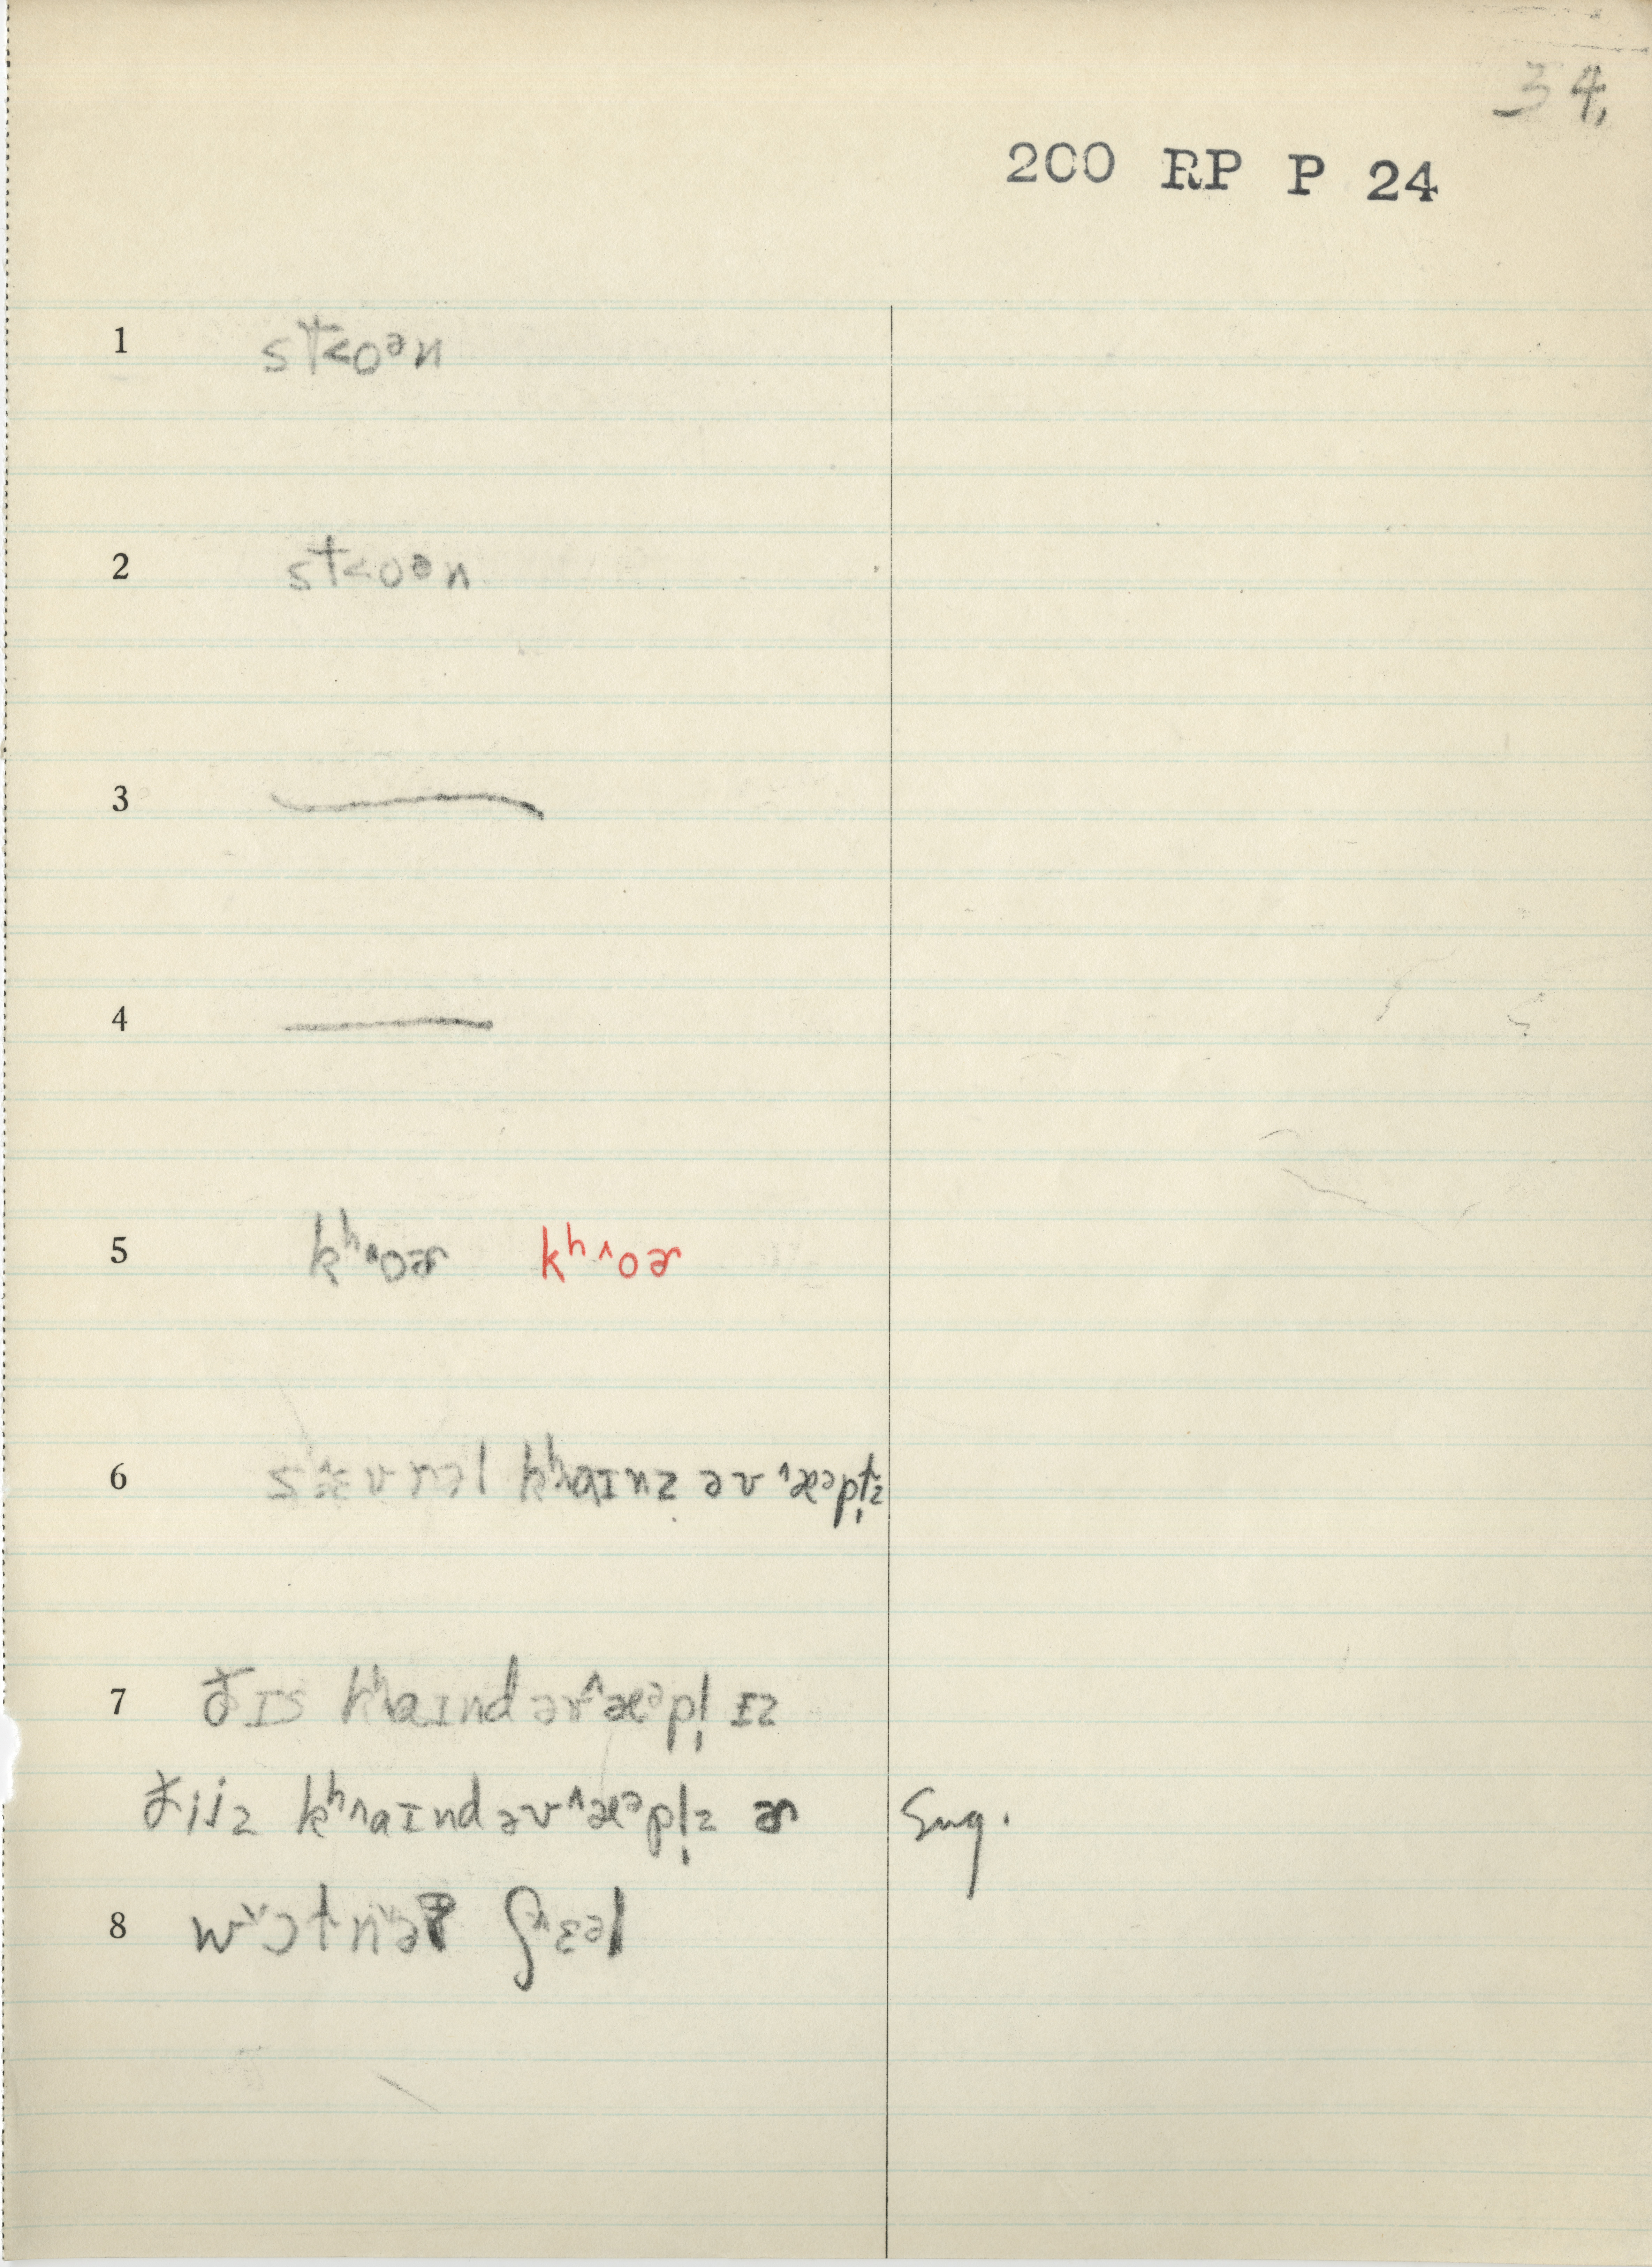 34.
200 RP P 24
1 st˂oᵊn
2 st˂oən
3
4
5 kʰ˄oɚ kʰ˄oɚ
6 nəl kʰ˄aɪnz əv ˄æᵊpl̩z
7 ðɪs kʰaɪnd əv ˄æᵊpl̩ ɪz
ðijz kʰ˄aɪnd əv ˄æᵊpl̩z ɚ Eng.
8 ʃ˄ɛəl